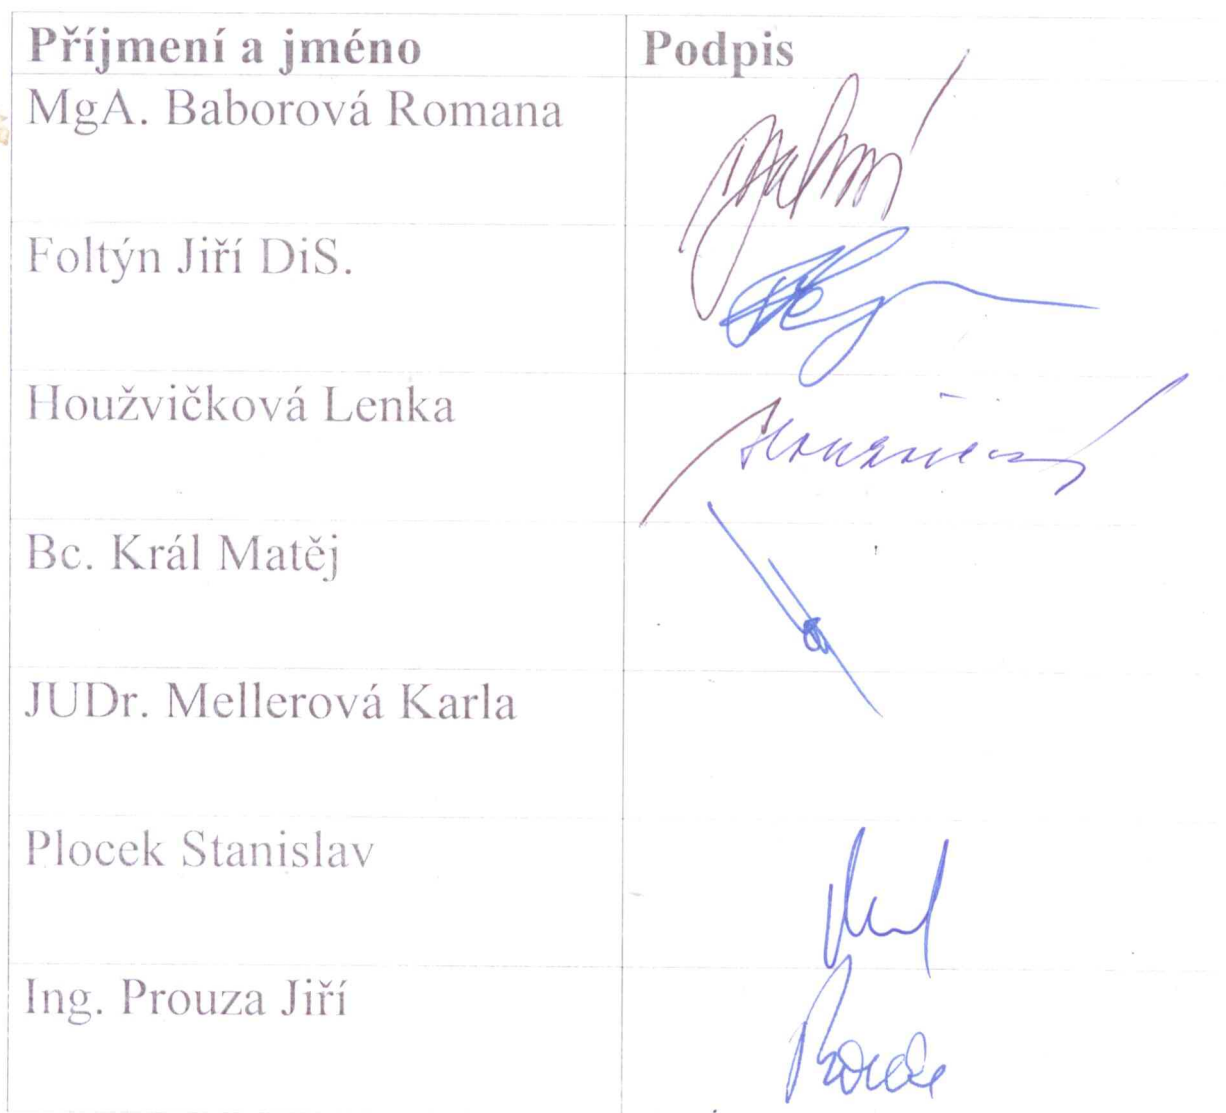 Příjmení a jméno Podpis
MgA. Baborová Romana
Foltýn Jiří DiS.
Houžvičková Lenka
Bc. Král Matěj
JUDr. Mellerová Karla
Plocek Stanislav
Ing. Prouza Jiří